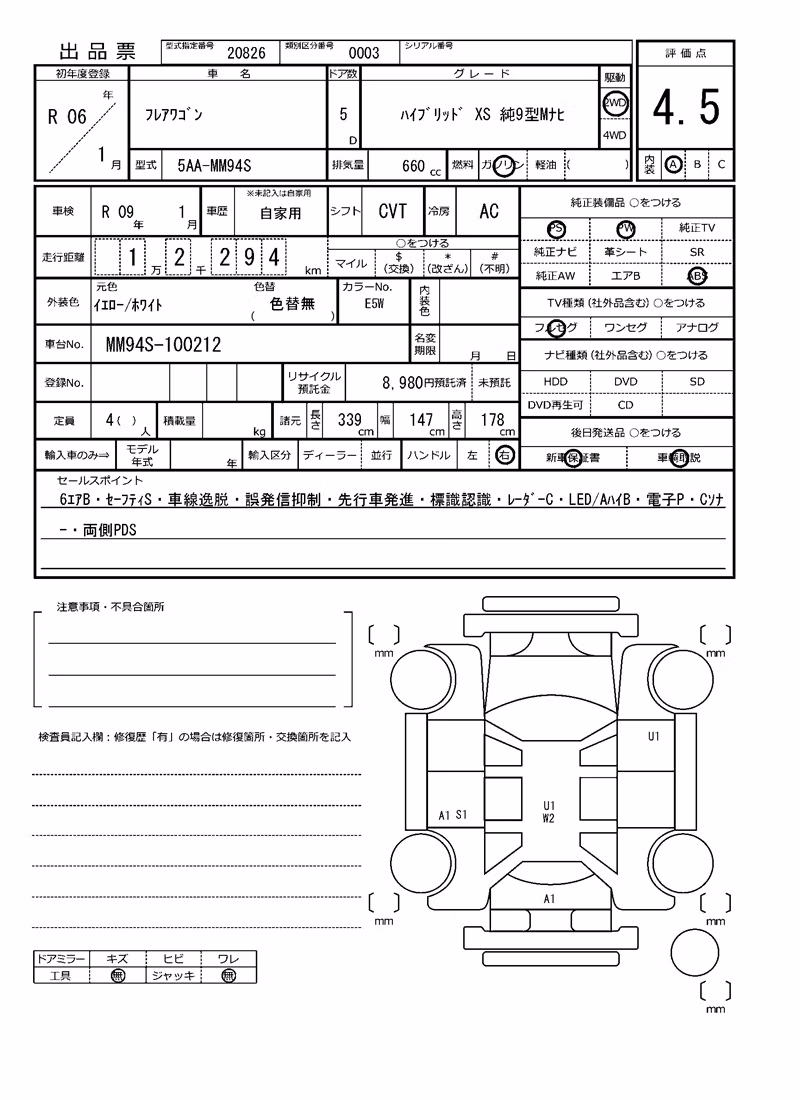 出品票 型式指定番号 20826 類別区分番号 0003 シリアル番号
評価点
4.5
内装 A B C
初年度登録 車名 ドア数 グレード 駆動
R 06 年 1 月 フレアワゴン 5 D ハイブリッド XS 純9型Mナビ 2WD
4WD
型式 5AA-MM94S 排気量 660 cc 燃料 ガソリン 軽油 ( )
車検 R 09 年 1 月 車歴 ※未記入は自家用 自家用 シフト CVT 冷房 AC
走行距離 1 万 2 千 2 9 4 km
○をつける
マイル $ (交換) * (改ざん) # (不明)
外装色 元色 イエロー/ホワイト 色替 ( 色替無 ) カラーNo. E5W 内装色
車台No. MM94S-100212 名変期限 月 日
登録No. リサイクル預託金 8,980円預託済 未預託
定員 4( ) 人 積載量 kg 諸元 長さ 339 cm 幅 147 cm 高さ 178 cm
輸入車のみ⇒ モデル年式 年 輸入区分 ディーラー 並行 ハンドル 左 右
純正装備品 ○をつける
PS PW 純正TV
純正ナビ 革シート SR
純正AW エアB ABS
TV種類(社外品含む) ○をつける
フルセグ ワンセグ アナログ
ナビ種類(社外品含む) ○をつける
HDD DVD SD
DVD再生可 CD
後日発送品 ○をつける
新車保証書 車輌取説
セールスポイント
6エアB・セーフティS・車線逸脱・誤発信抑制・先行車発進・標識認識・レーダーC・LED/AハイB・電子P・Cソナ
ー・両側PDS
注意事項・不具合箇所
検査員記入欄：修復歴「有」の場合は修復箇所・交換箇所を記入
mm mm
U1
U1
W2
A1 S1
A1
mm mm
mm
ドアミラー キズ ヒビ ワレ
工具 無 ジャッキ 無